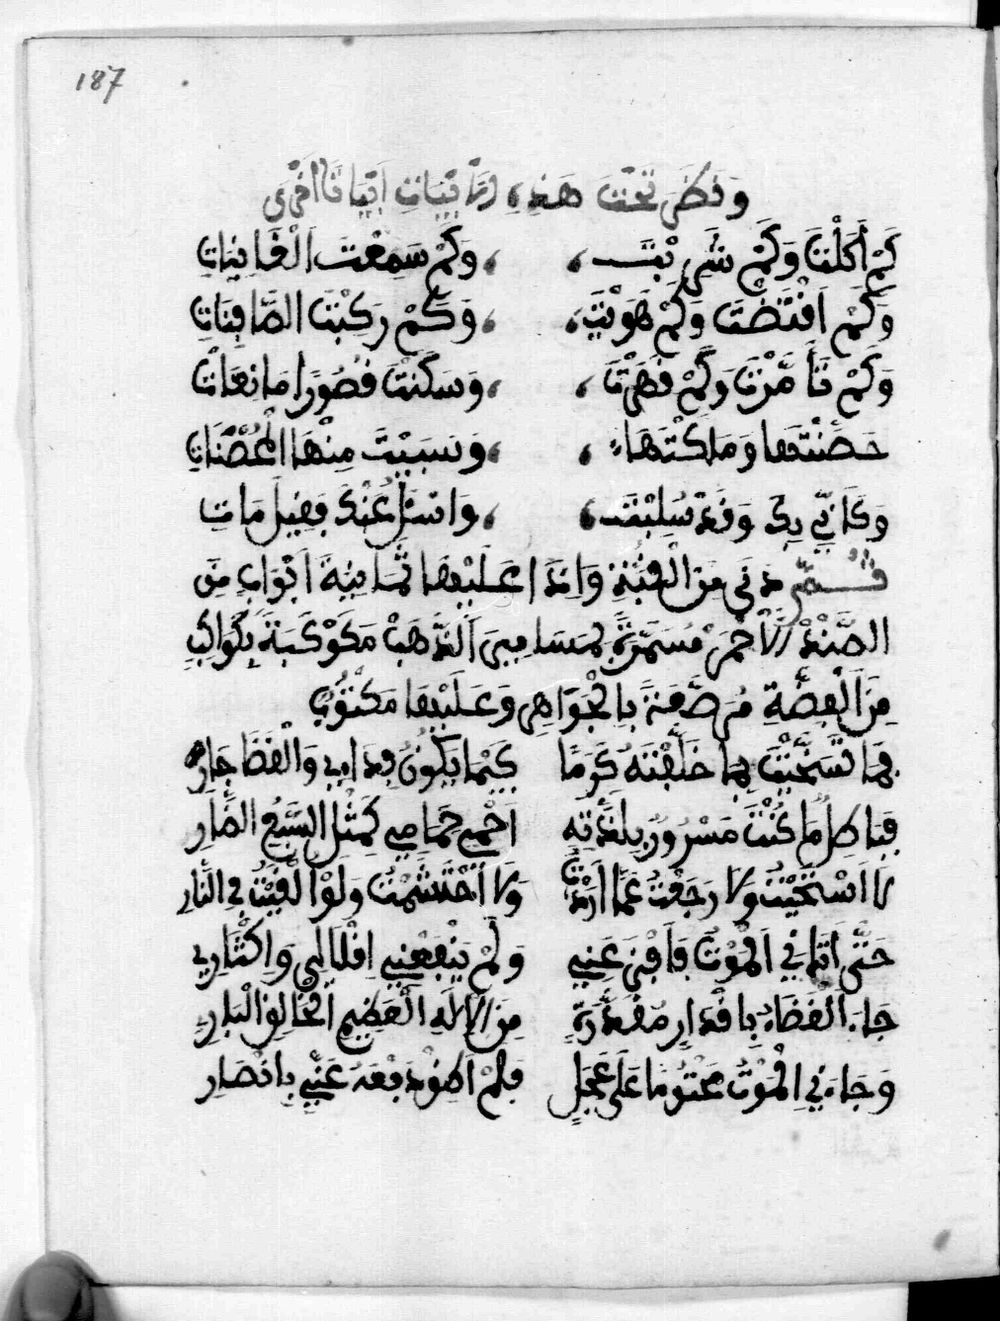 187
ونظر تحت هذه الابيات ابياتا اخرى
كَمْ أَكَلْتَ وَكَمْ شَرِبْتَ ، ، وَكَمْ سَمِعْتَ الْغَانِيَاتِ
وَكَمْ اَفْتَضَضْتَ وَكَمْ هَوَيْتَ ، ، وَكَمْ رَكِبْتَ الصَّافِنَاتِ
وَكَمْ تَأَمَّرْتَ وَكَمْ قَهَرْتَ ، ، وَسَكَنْتَ قُصُورًا مَانِعَاتْ
حَصَّنْتَهَا وَمَلَكْتَهَا ، ، وَسَبَيْتَ مِنْهَا الْمُحْصَنَاتِ
وَكَأَنِّي بِكَ وَقَدْ سُلِبْتَ ، ، وَانْسَلَّ عَنْكَ فَقِيلَ مَاتِ
ثُمَّ دَنَى مِنَ الْقُبَّةِ وَاِذَا عَلَيْهَا ثَمَانِيَةُ اَبْوَابٍ مِنَ
الصَّنْدَلِ الْأَحْمَرْ مُسَمَّرَةٌ بِمَسَامِيرَ الذَّهَبْ مَكَوْكَبَةً بِكَوَاكِبِ
مِنَ الْفِضَّةِ مُرَصَّعَةً بِالْجَوَاهِرِ وَعَلَيْهَا مَكْتُوبٌ
فما خلفته كَرَمًا كَيْمَا يَكُونُ وَالْقَضَا جَارِ
فيا كل ما كُنْتَ مَسْرُورٌ بلذته اَحْمِي حَمَامِي كَمِثْلِ السَّبُعِ الضَّارِ
لا اَسْتَحَيْتُ وَلَا رَجَعْتُ عَمَّا اَرَدْتُ وَلَا اَحْتَشَمْتُ وَلَوْ الْقِيتُ فِي النَّارِ
حَتَّى اَتَانِي اَلْمَوْتُ فَاَفْنَى عَنِّي وَلَمْ يَنْفَعْنِي اِقْلَالِي وَاِكْثَارِي
جَاءَ الْقَضَاءُ بِاَقْدَارٍ مُقَدَّرَةٍ مِنَ الْإِلَهِ الْعَظِيمِ الْخَالِقِ الْبَارِي
وَجَاءَنِي اَلْمَوْتُ مَحْتُومًا عَلَى عَجَلٍ فَلَمْ اَطِقْ دَفْعَهُ عَنِّي بِاَنْصَارِ